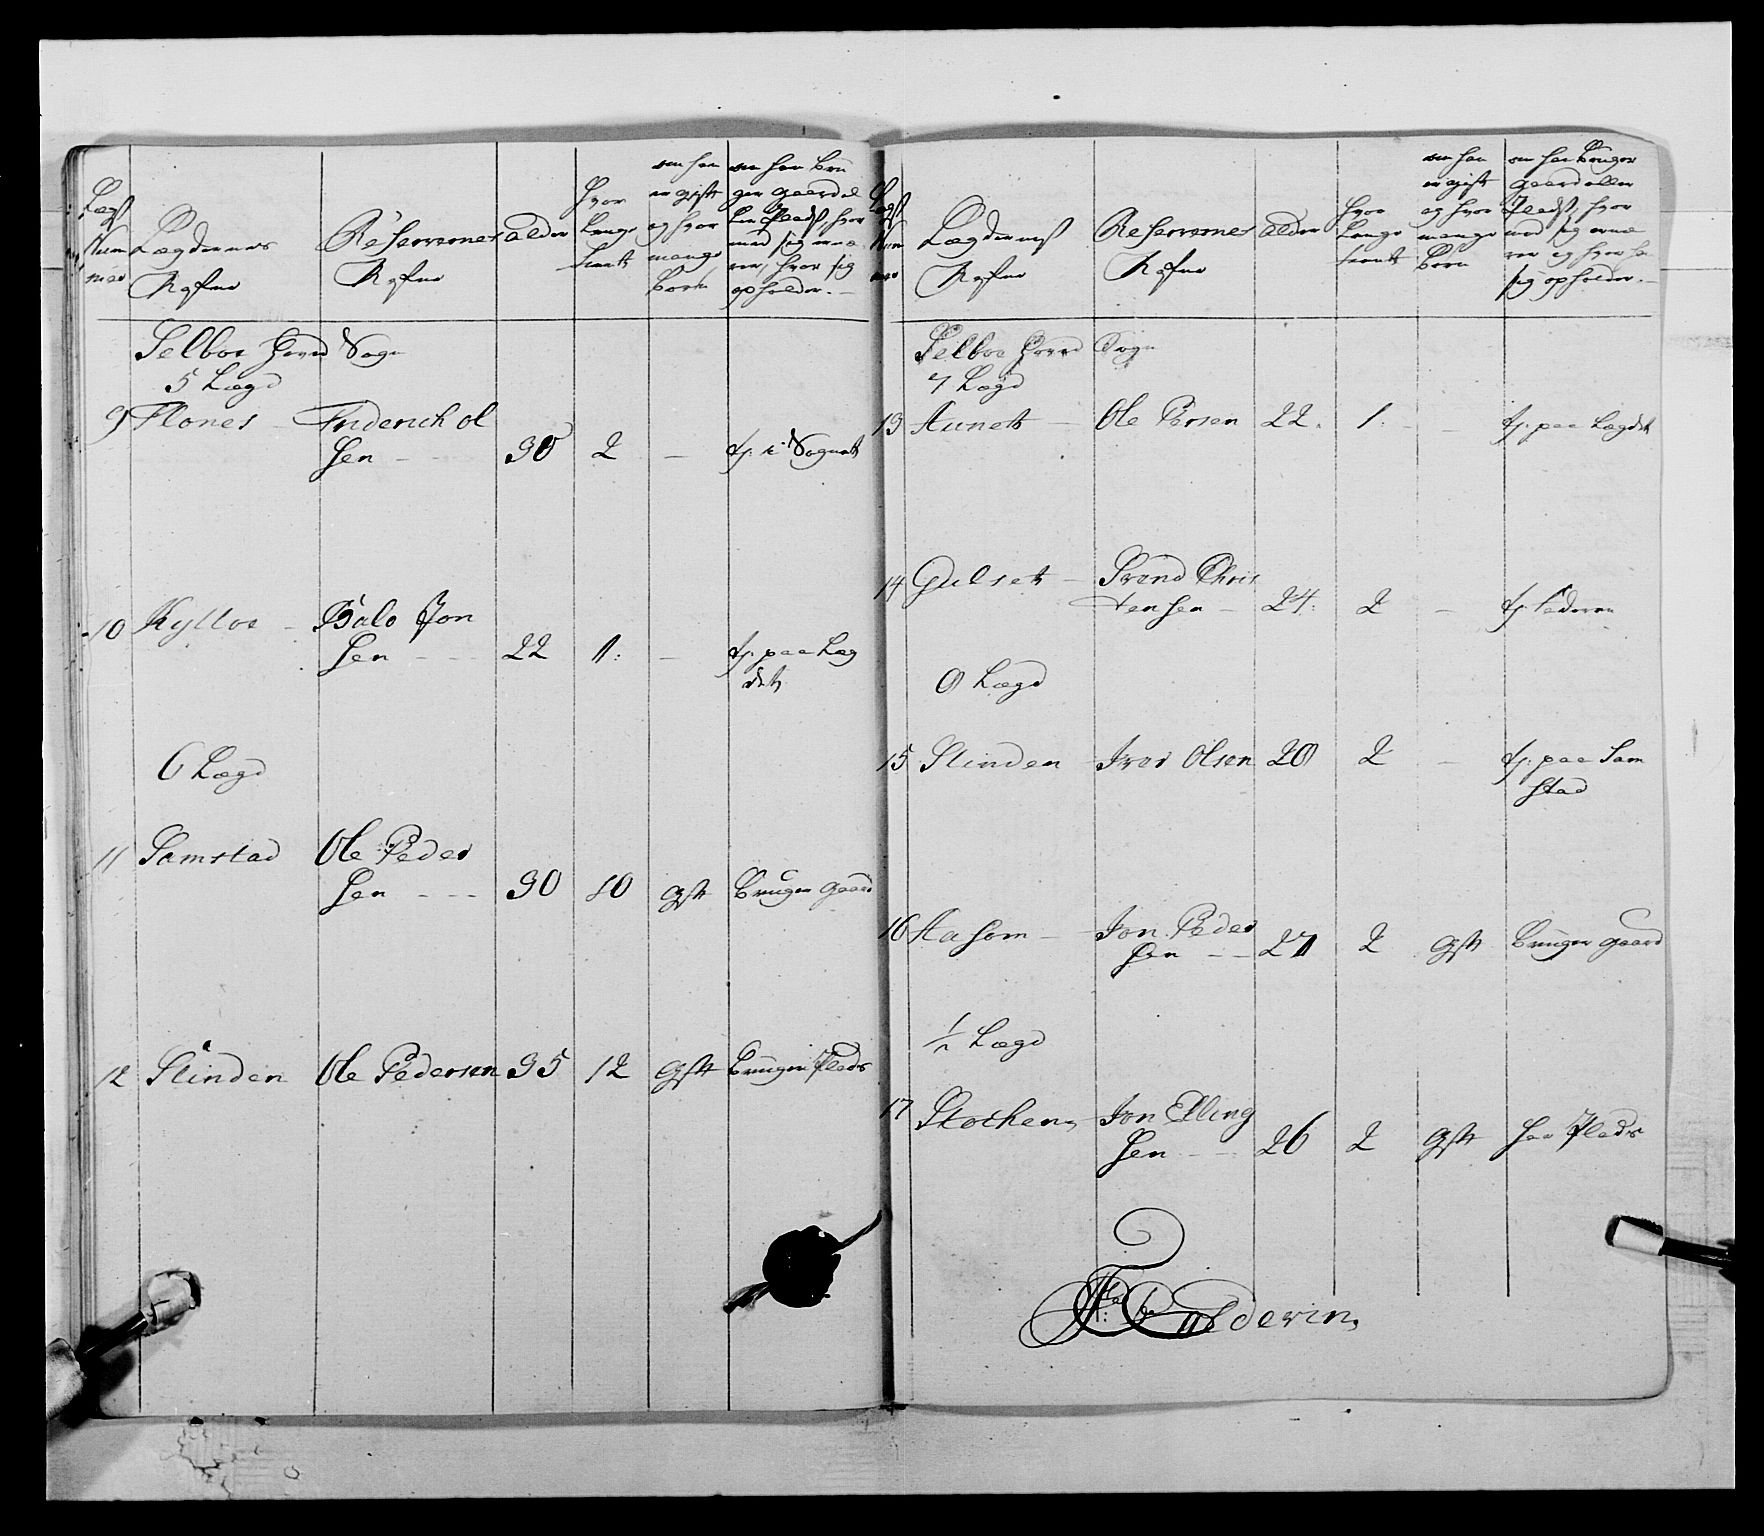 Lægs Num mer
Lægdernes Nafne
Reservernes Nafne
alder
hvor Længe tient
om han er gift og hvor mange børn
om han bru
ger gaard el
ler Pladtz, hvor
med sig ernæ
rer, hvor sig
opholder.
Selboe Hoved Sogn
5 Lægd
9 Flones - Friderich ol
Sen - - 30 2 - tj. i Sognet
10 Kylloe - Baro Jon
Sen - - 22 1: - tj. paa Læg
det
6 Lægd
11 Samstad Ole Peder
Sen - - - 30 10 gift bruger gaard
12 Slinden Ole Pedersen 35 12 gift bruger Plads
Lægs Num mer
Lægdernes Nafne
Reservernes Nafne
alder
hvor Længe tient
om han er gift og hvor mange børn
om han bruger
gaard eller
Pladtz, hvor
med sig ernæ
rer og hvor ha
sig opholder.
Selboe Hoved Sogn
7 Lægd
13 Aunet - Ole Persen 22. 1. - tj. paa Lægdet
14 Gulset - Svend Chris
tensen - 24: 2 - tj. Faderen
8 Lægd
15 Slinden - Iver Olsen 20 2 - tj. paa Sam
stad
16 Aasom - Jon Peder
Sen - - 27 2 gift bruger gaard
1/2 Lægd
17 Stocken - Jon Elling
Sen - - 26 2 gift har Plads